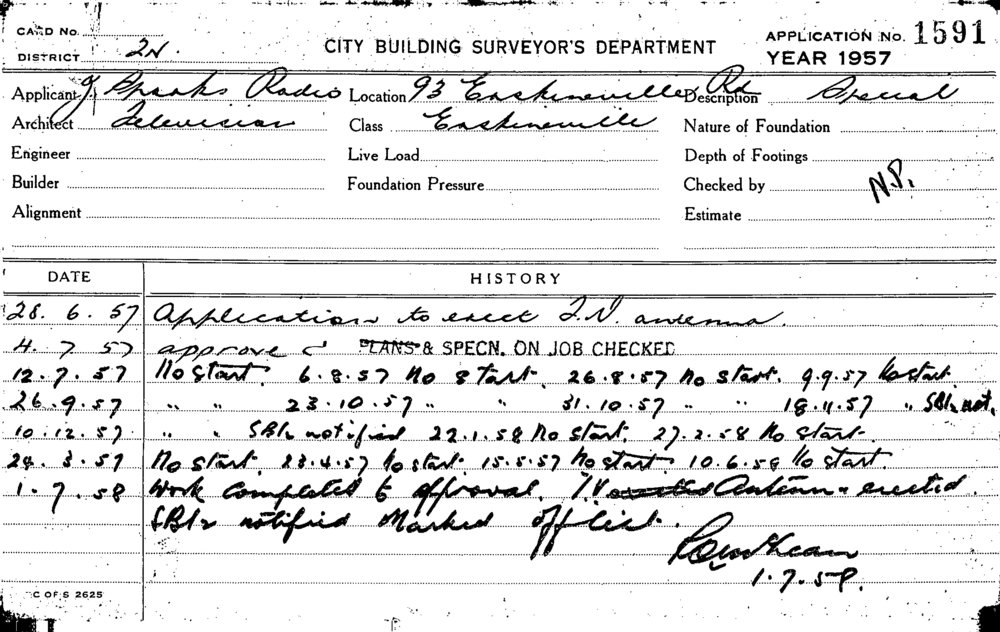 CARD No.
DISTRICT 2N.
CITY BUILDING SURVEYOR'S DEPARTMENT
APPLICATION No. 1591
YEAR 1957
Applicant J Sparks Radio Location 93 Erskineville Rd Description Special
Architect Television Class Erskineville Nature of Foundation
Engineer Live Load Depth of Footings
Builder Foundation Pressure Checked by N.P.
Alignment Estimate
DATE HISTORY
28. 6. 57 Application to erect T.V. antenna.
4. 7. 57 approved PLANS & SPECN. ON JOB CHECKED
12.7.57 No start. 6.8.57 No start. 26.8.57 No start. 9.9.57 No start
26.9.57 " " 23.10.57 " " 31.10.57 " " 18.11.57 " SBI2 not.
10.12.57 " " SBI2 notified 22.1.58 No start. 27.2.58 No start.
24.3.57 No start. 23.4.57 No start. 15.5.57 No start. 10.6.58 No start.
1.7.58 Work completed to approval. T.V. erected Antenna erected.
SBI2 notified Marked off list.
1.7.58.
C OF S 2625